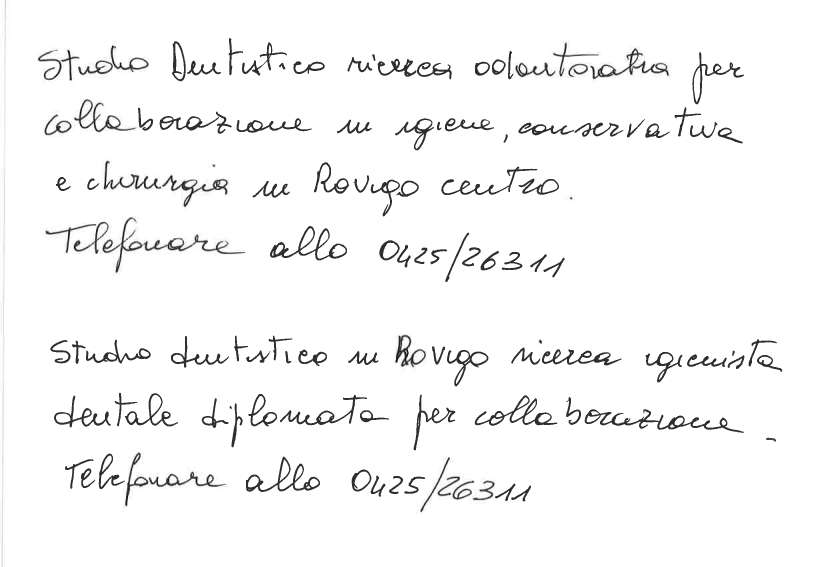 Studio Dentistico ricerca odontoiatra per
collaborazione in igiene, conservativa
e chirurgia in Rovigo centro.
Telefonare allo 0425/26311
Studio dentistico in Rovigo ricerca igienista
dentale diplomata per collaborazione.
Telefonare allo 0425/26311